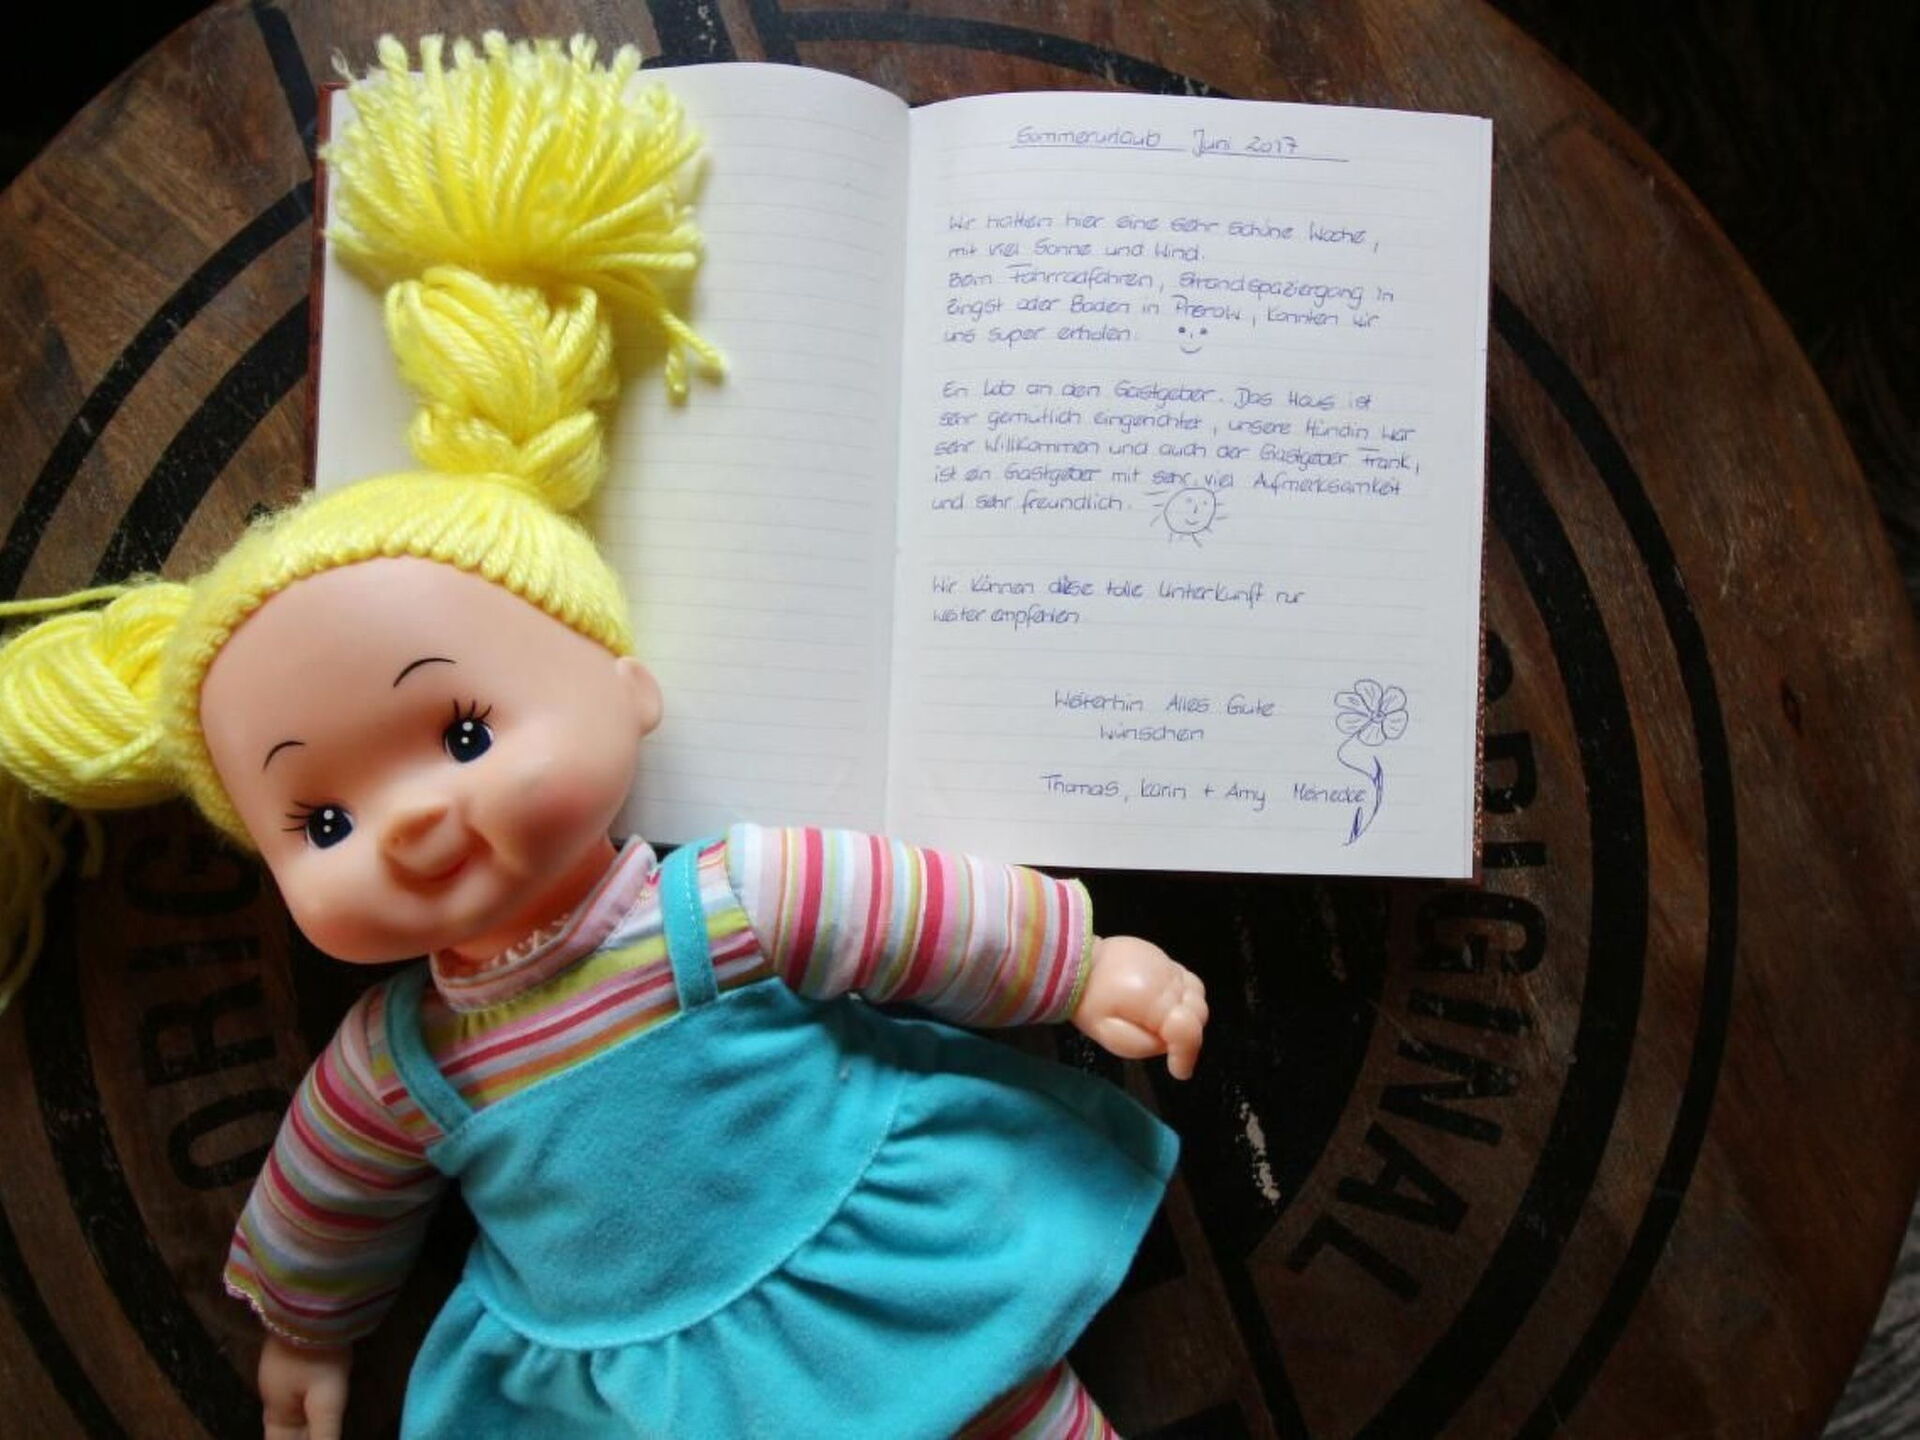 Sommerurlaub Juni 2017
Wir hatten hier eine sehr schöne Woche,
mit viel Sonne und Wind.
Beim Fahrradfahren, Strandspaziergang in
Zingst oder Baden in Prerow, konnten wir
uns super erholen.
Ein Lob an den Gastgeber. Das Haus ist
sehr gemütlich eingerichtet, unsere Hündin war
sehr Willkommen und auch der Gastgeber Frank,
ist ein Gastgeber mit sehr viel Aufmerksamkeit
und sehr freundlich.
Wir können diese tolle Unterkunft nur
weiter empfehlen
Weiterhin Alles Gute
wünschen
Thomas, Karin + Amy Meinecke
ORIGINAL